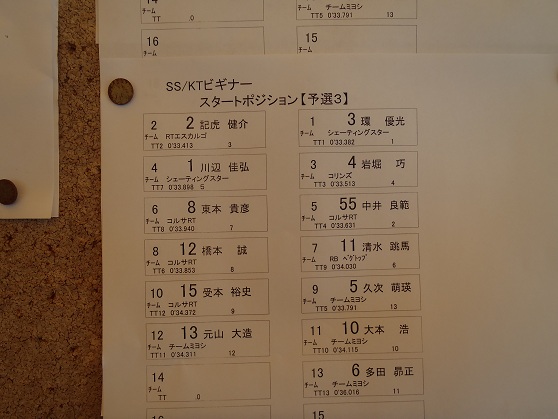 14
チーム
TT 0
チームミヨシ
TT5 0'33.791 13
16
15
SS/KTビギナー
スタートポジション【予選3】
2 2 記虎 健介
チーム RTエスカルゴ
TT2 0'33.413 3
1 3 環 優光
チーム シューティングスター
TT1 0'33.382 1
4 1 川辺 佳弘
チーム シューティングスター
TT7 0'33.898 5
3 4 岩堀 巧
チーム コリンズ
TT3 0'33.513 4
6 8 東本 貴彦
チーム コルサRT
TT8 0'33.940 7
5 55 中井 良範
チーム コルサRT
TT4 0'33.631 2
8 12 橋本 誠
チーム コルサRT
TT6 0'33.853 8
7 11 清水 跳馬
チーム RB ペグトップ
TT9 0'34.030 6
10 15 受本 裕史
チーム コルサRT
TT12 0'34.372 9
9 5 久次 萌瑛
チーム チームミヨシ
TT5 0'33.791 13
12 13 元山 大造
チーム チームミヨシ
TT11 0'34.311 12
11 10 大本 浩
チーム チームミヨシ
TT10 0'34.115 10
14
チーム
TT 0
13 6 多田 昴正
チーム チームミヨシ
TT13 0'36.016 11
15